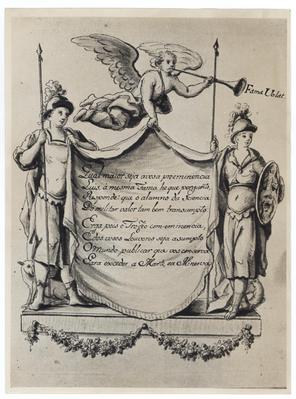 Fama Volat.
Qual maior seja a vossa preeminencia
Luis, á mesma Fama, he que pergunto,
Responde: que o alumno da Sciencia
Do militar valor tambem transumpto.
Erga pois o Trofeo com eminencia,
E dos vosos Louvores seja asumpto
O mundo publicar que vos conserva
Para exceder a Marte, ou Minerva